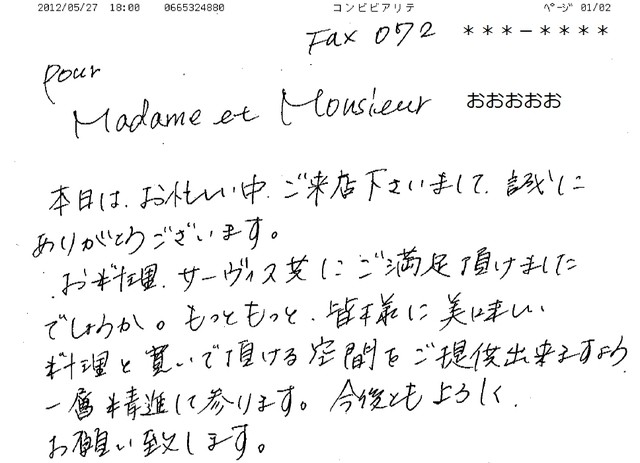 2012/05/27 18:00 0665324880 コンビビアリテ ページ 01/02
Fax 072 ***-****
pour
Madame et Monsieur おおおおお
本日は、お忙しい中、ご来店下さいまして、誠に
ありがとうございます。
お料理、サーヴィス共にご満足頂けました
でしょうか。もっともっと、皆様に美味しい
料理と寛いで頂ける空間をご提供出来ますよう
一層精進して参ります。今後ともよろしく
お願い致します。